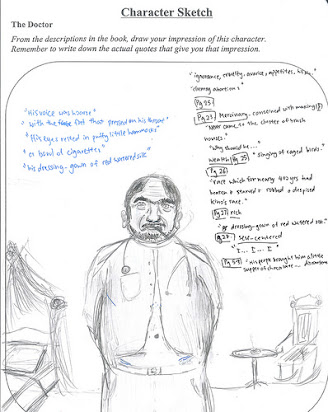 Character Sketch
The Doctor
From the descriptions in the book, draw your impression of this character.
Remember to write down the actual quotes that give you that impression.
"His voice was hoarse"
" with the fat that pressed on his throat
"His eyes rested in puffy little hammocks"
" a bowl of cigarettes"
"his dressing-gown of red watered silk
"ignorance, cruelty, avarice, appetites,
"clumsy abortions
Pg 25
Pg 23 Mercinary - concerned with making
"never came to the cluster of brush
houses.
"Why should he...."
wealth Pg 25 "singing of caged birds"
Pg 26
"race which for nearly 400 yrs had
beaten & starved & robbed & despised
Kino's race.
Pg 27 rich
" dressing-gown of red watered silk"
Pg 27 Self-centered
"I... I... I"
"his people brought him a little